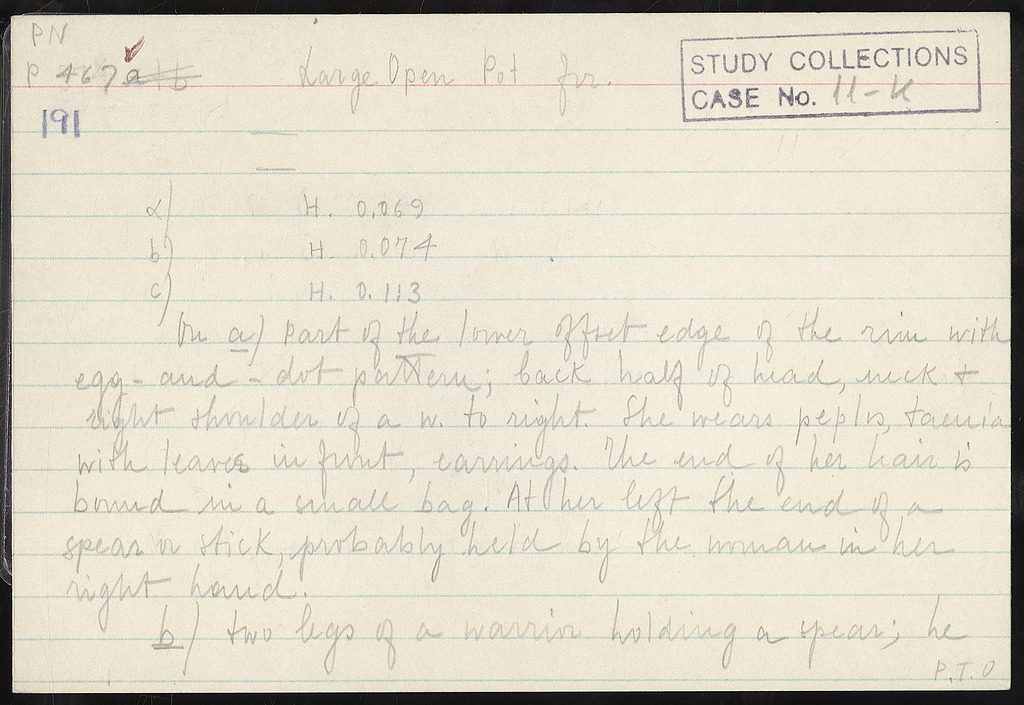 PN
P 467a
Large Open Pot fr.
STUDY COLLECTIONS
CASE No. 11-K
191
a) H. 0.069
b) H. 0.074
c) H. 0.113
On a) part of the lower offset edge of the rim with
egg-and-dot pattern; back half of head, neck +
right shoulder of a w. to right. She wears peplos, taenia
with leaves in front, earrings. The end of her hair is
bound in a small bag. At her left the end of a
spear or stick, probably held by the woman in her
right hand.
b) two legs of a warrior holding a spear; he
P.T.O